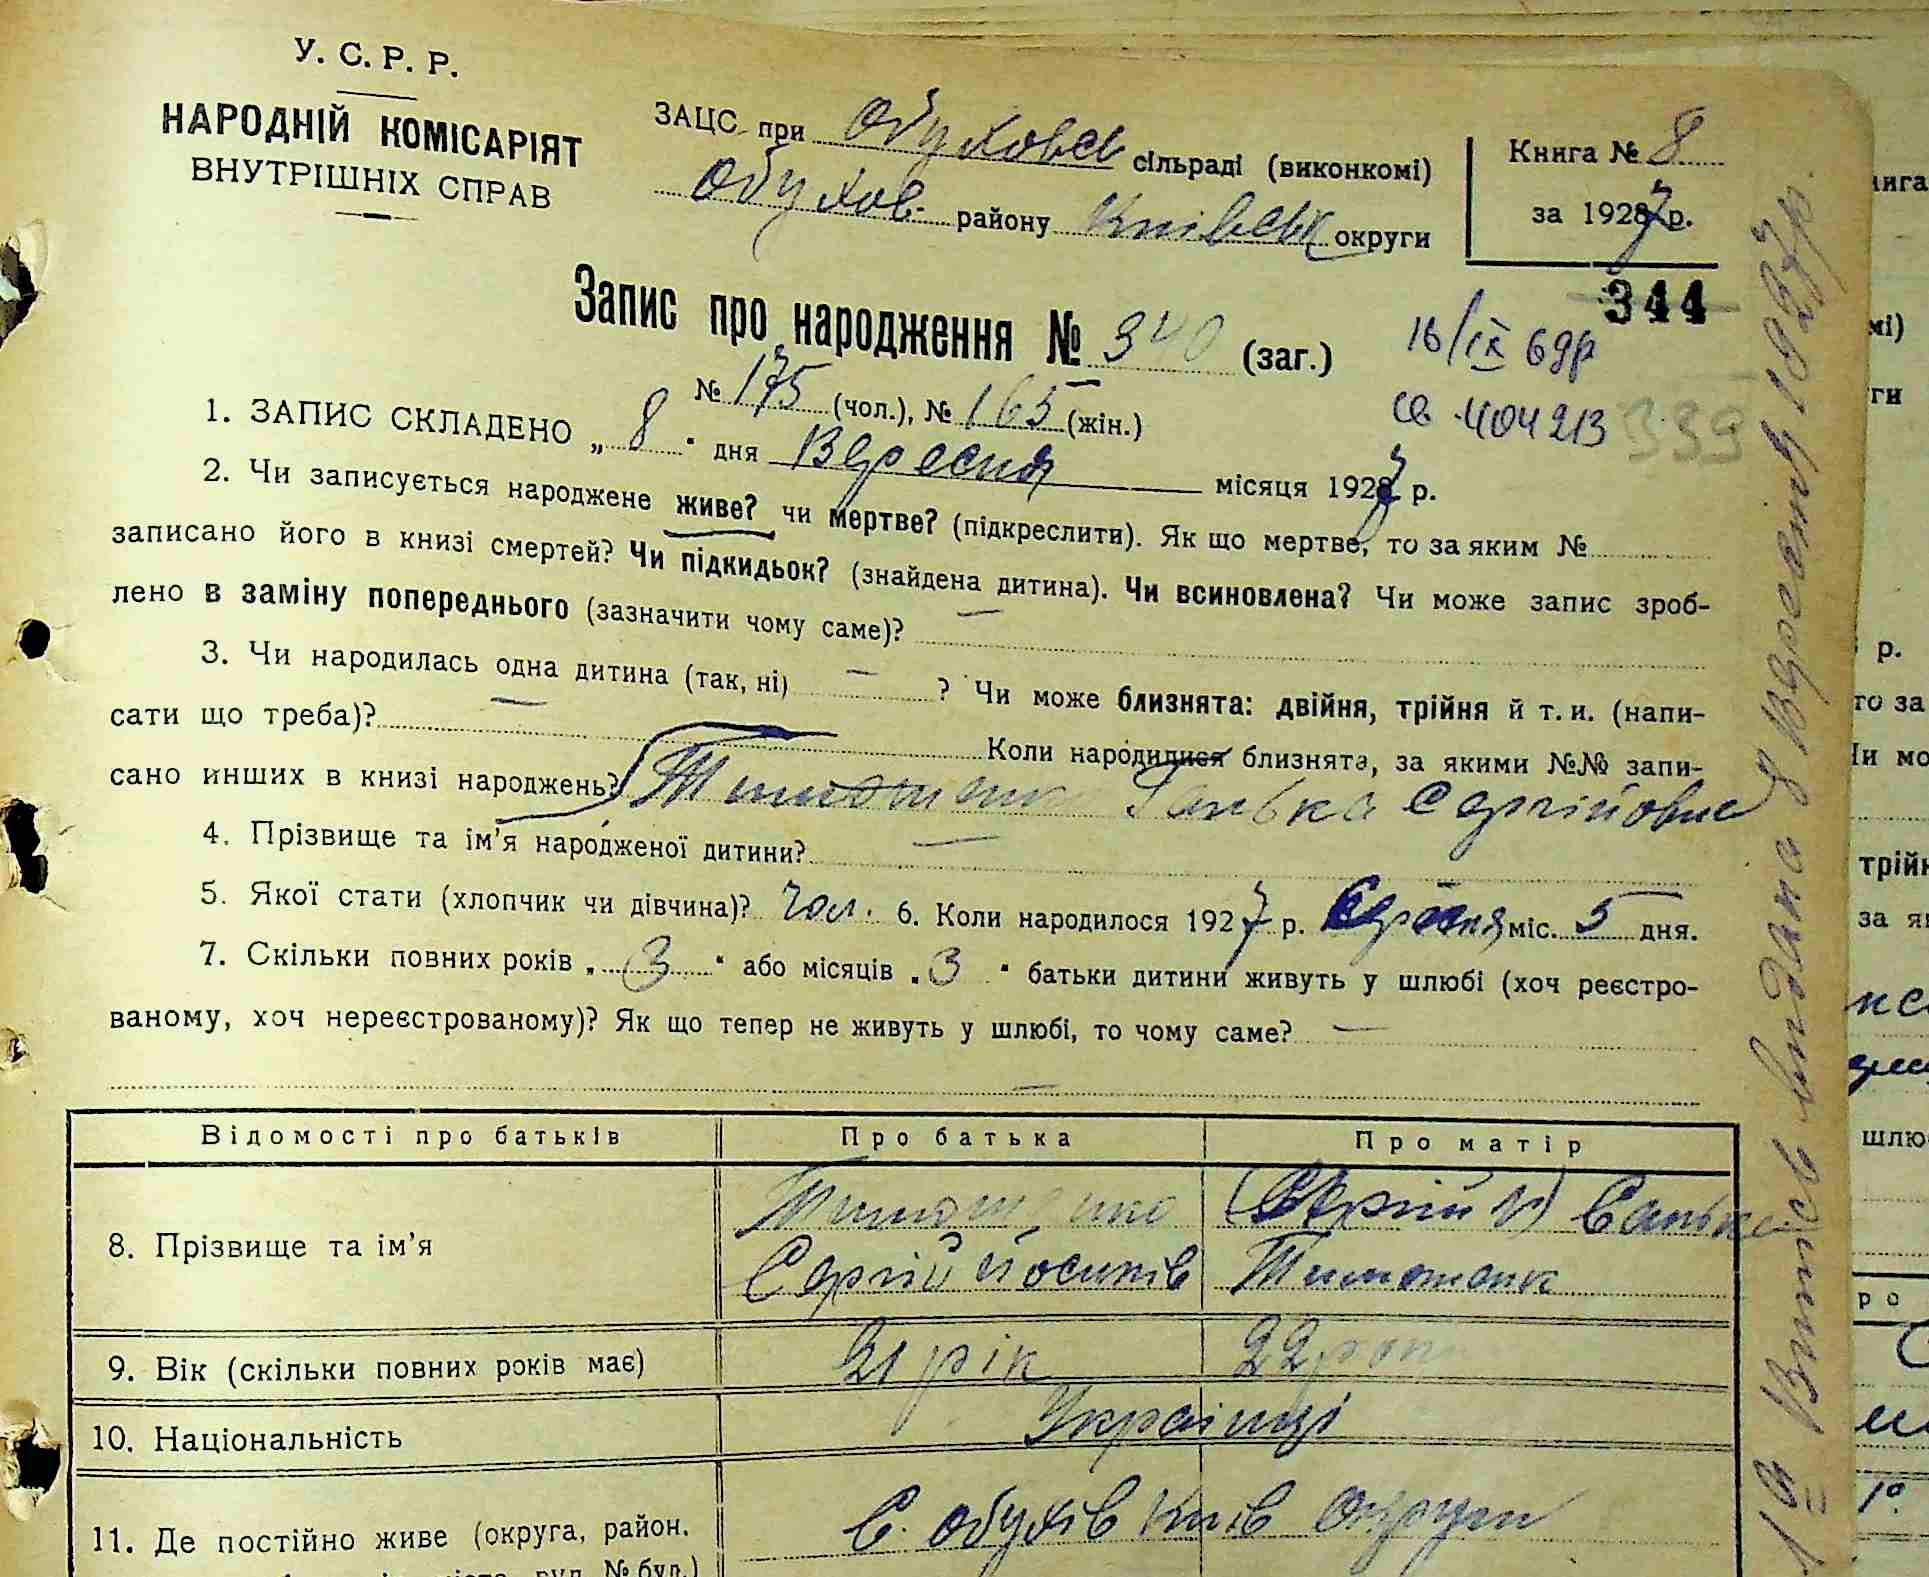 У. С. Р. Р.
НАРОДНІЙ КОМІСАРІЯТ
ВНУТРІШНІХ СПРАВ
ЗАЦС при Обуховсь сільраді (виконкомі)
Обухов. району Київськ округи
Книга № 8
за 1927 р.
344
Запис про народження № 340 (заг.)
16/IX 69р
св 404213
339
№ 175 (чол.), № 165 (жін.)
1. ЗАПИС СКЛАДЕНО „ 8 " дня Вересня місяця 1927 р.
2. Чи записується народжене живе? чи мертве? (підкреслити). Як що мертве, то за яким №
записано його в книзі смертей? Чи підкидьок? (знайдена дитина). Чи всиновлена? Чи може запис зроб-
лено в заміну попереднього (зазначити чому саме)? —
3. Чи народилась одна дитина (так, ні) — ? Чи може близнята: двійня, трійня й т. и. (напи-
сати що треба)? — Коли народилися близнята, за якими №№ запи-
сано инших в книзі народжень? Сергійовна
4. Прізвище та ім'я народженої дитини? —
5. Якої стати (хлопчик чи дівчина)? Чол. 6. Коли народилося 1927 р. Серпня міс. 5 дня.
7. Скільки повних років „ 3 " або місяців „ 3 " батьки дитини живуть у шлюбі (хоч реєстро-
ваному, хоч нереєстрованому)? Як що тепер не живуть у шлюбі, то чому саме? —
—
Відомості про батьків
Про батька
Про матір
8. Прізвище та ім'я
Тимошенко
Сергій Йосипів
Тимошенк
9. Вік (скільки повних років має)
21 рік
22 рок
10. Національність
Українці
11. Де постійно живе (округа, район,
С. Обухів Київ округи
Витяг видано 8 Вересня 1927р.